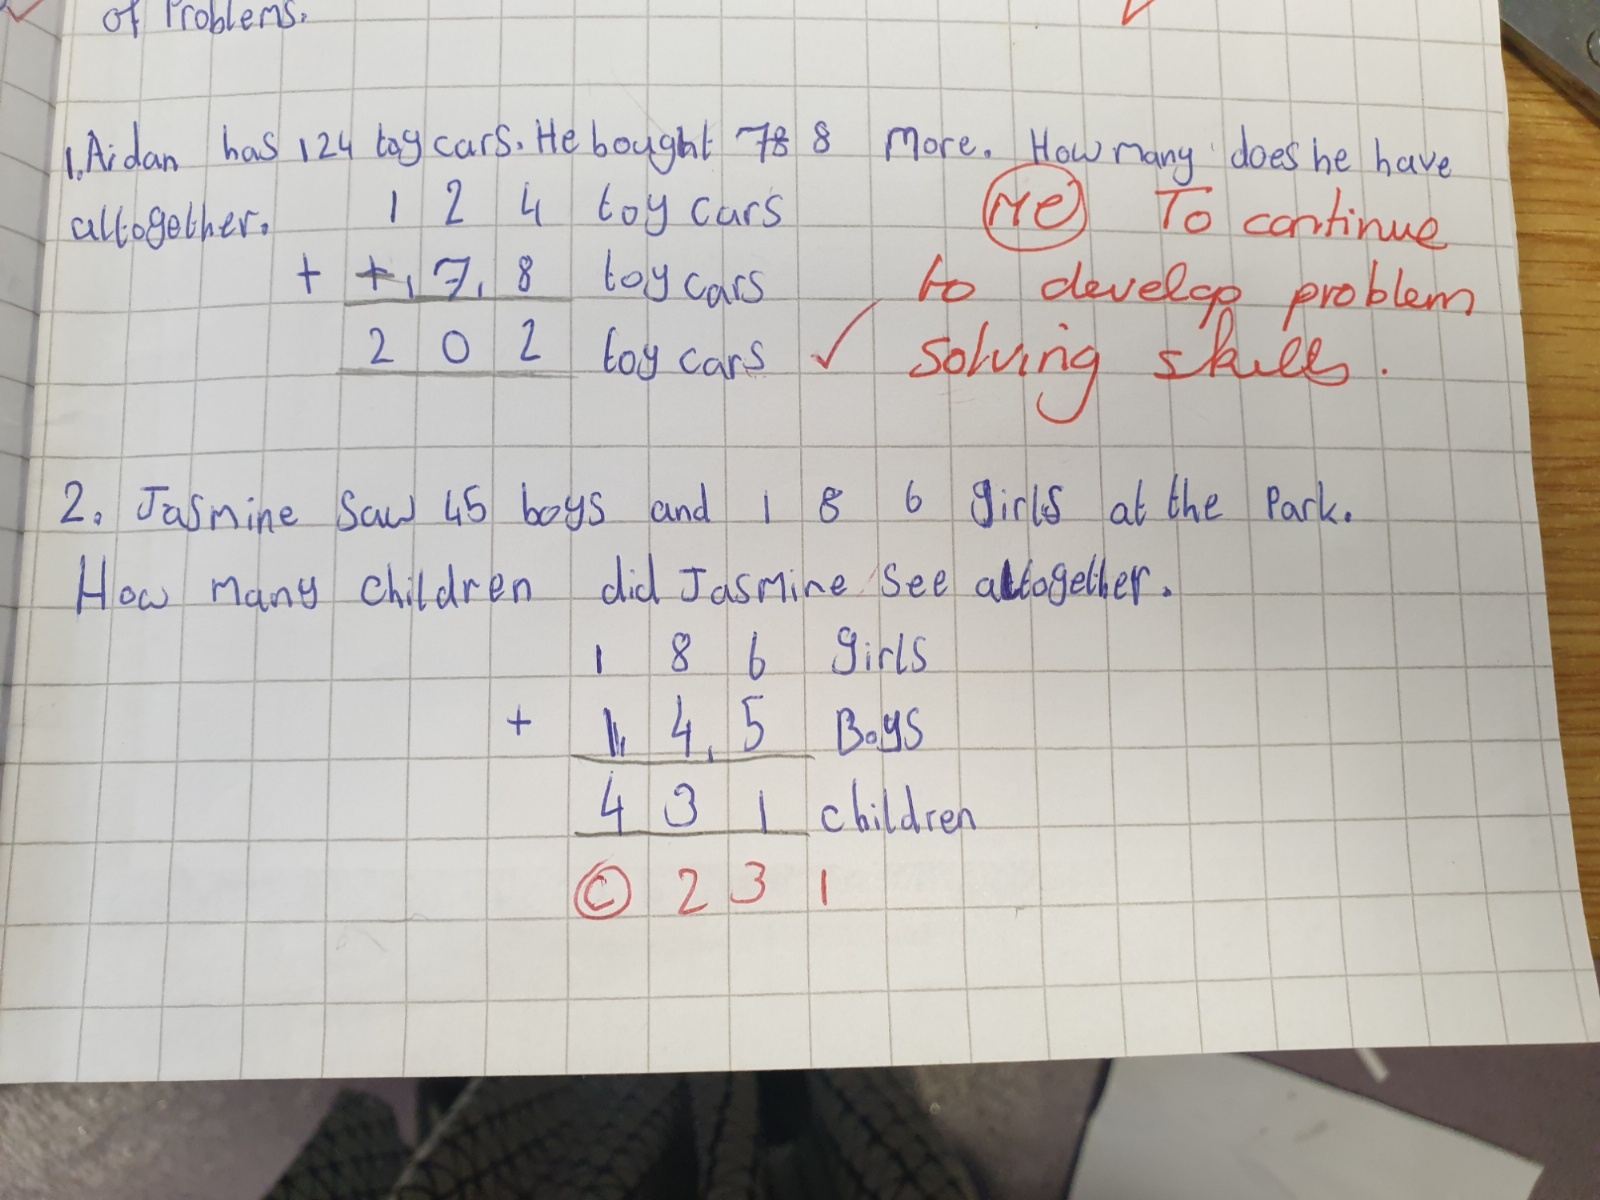 of Problems.
1. Aidan has 124 toy cars. He bought 78 8 more. How many does he have
altogether.
1 2 4 toy cars
+ 1 7 1 8 toy cars
2 0 2 toy cars
NC To continue
to develop problem
solving skills.
2. Jasmine saw 45 boys and 1 8 6 girls at the Park.
How many children did Jasmine see altogether.
1 8 6 girls
+ 1 4 1 5 Boys
4 3 1 children
C 2 3 1